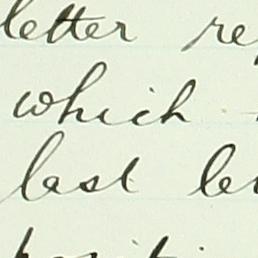 letter re
which
last le